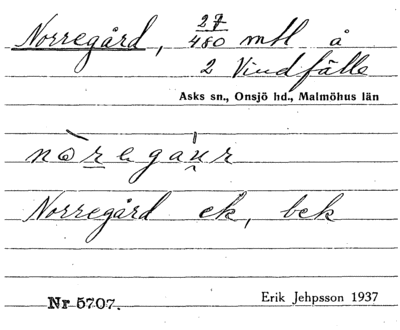 Norregård, 27/480 mtl å
2 Vindfälle
Asks sn., Onsjö hd., Malmöhus län
Norregård ek, bek
Nr 5707.
Erik Jehpsson 1937